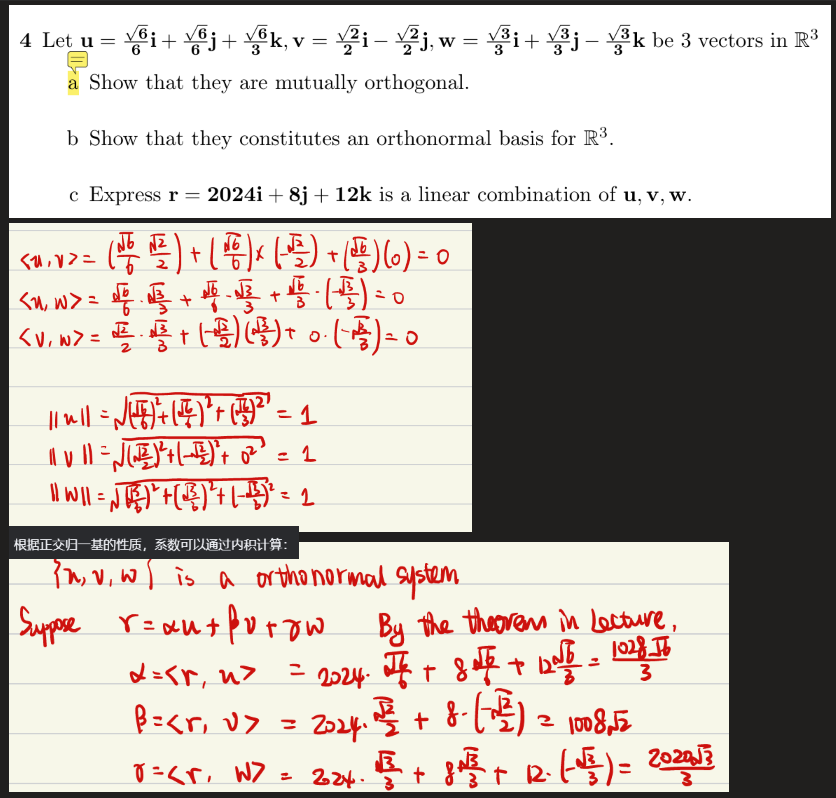 4 Let u = √6/6 i + √6/6 j + √6/3 k, v = √2/2 i − √2/2 j, w = √3/3 i + √3/3 j − √3/3 k be 3 vectors in ℝ³
a Show that they are mutually orthogonal.
b Show that they constitutes an orthonormal basis for ℝ³.
c Express r = 2024i + 8j + 12k is a linear combination of u, v, w.
<u,v> = (√6/6 √2/2) + (√6/6)×(-√2/2) + (√6/3)(0) = 0
<u,w> = √6/6 · √3/3 + √6/6 · √3/3 + √6/3 · (-√3/3) = 0
<v,w> = √2/2 · √3/3 + (-√2/2)(√3/3) + 0·(-√3/3) = 0
||u|| = √((√6/6)²+(√6/6)²+(√6/3)²) = 1
||v|| = √((√2/2)²+(-√2/2)²+0²) = 1
||w|| = √((√3/3)²+(√3/3)²+(-√3/3)²) = 1
根据正交归一基的性质，系数可以通过内积计算：
{u,v,w} is a orthonormal system
Suppose r = αu + βv + γw By the theorem in Lecture,
α = <r, u> = 2024· √6/6 + 8 √6/6 + 12 √6/3 = 1028√6/3
β = <r, v> = 2024· √2/2 + 8·(-√2/2) = 1008√2
γ = <r, w> = 2024· √3/3 + 8 √3/3 + 12·(-√3/3) = 2020√3/3